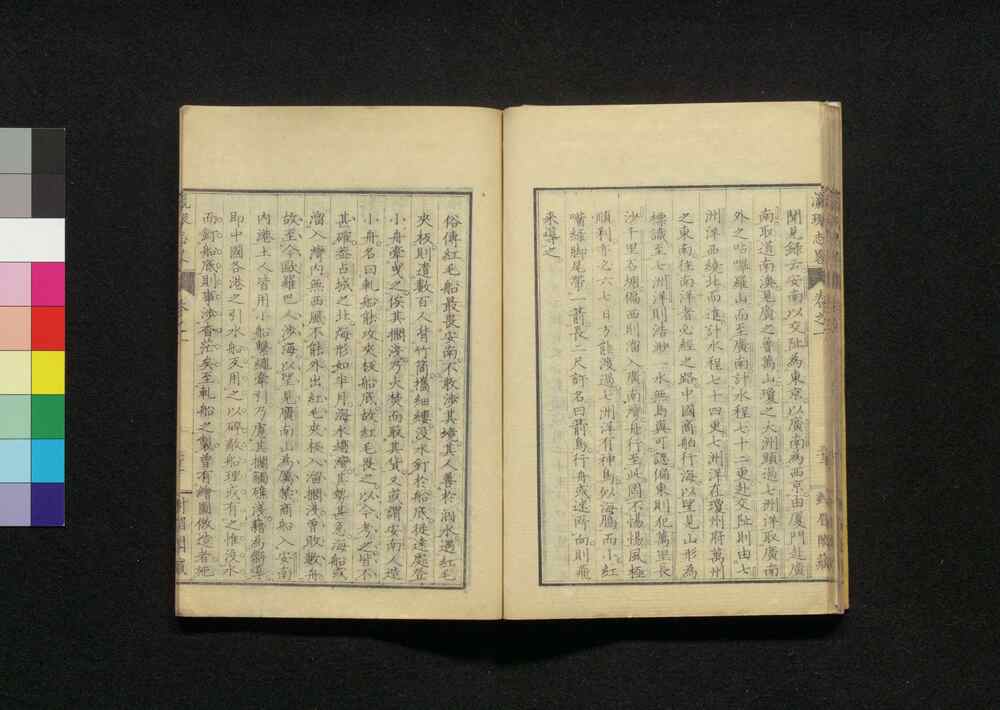 瀛環志畧
卷之一
聞見錄云安南以交阯為東京以廣南為西京由廈門赴廣
南取道南澳見廣之魯萬山瓊之大洲頭過七洲洋取廣南
外之咕嗶羅山而至廣南計水程七十二更赴交阯則由七
洲洋西繞北而進計水程七十四更七洲洋在瓊州府萬州
之東南往南洋者必經之路中國商舶行海以望見山形為
標識至七洲洋則浩渺一水無島嶼可認偏東則犯萬里長
沙千里石塘偏西則溜入廣南灣舟行至此罔不惕惕風極
順利亦必六七日方能渡過七洲洋有神鳥似海鴈而小紅
嘴綠脚尾帶一箭長二尺許名曰箭鳥行舟或迷所向則飛
來導之
俗傳紅毛船最畏安南不敢涉其境其人善於泅水遇紅毛
夾板則遣數百人背竹筒攜細縷沒水釘於船底從遠處登
小舟牽曳之俟其擱淺乃火焚而取其貨又或謂安南人造
小舟名曰軋船能攻夾板船底故紅毛畏之以今考之皆不
甚確蓋占城之北海形如半月海水趨灣其勢甚急海船或
溜入灣內無西風不能外出紅毛夾板入溜擱淺曾敗數舟
故至今歐羅巴人涉海以望見廣南山為厲禁商船入安南
內港土人皆用小船繫繩牽引乃慮其擱觸礁淺藉為嚮導
即中國各港之引水船反用之以碎敵船理或有之惟沒水
而釘船底則事涉杳茫矣至軋船之製曾有繪圖倣造者施